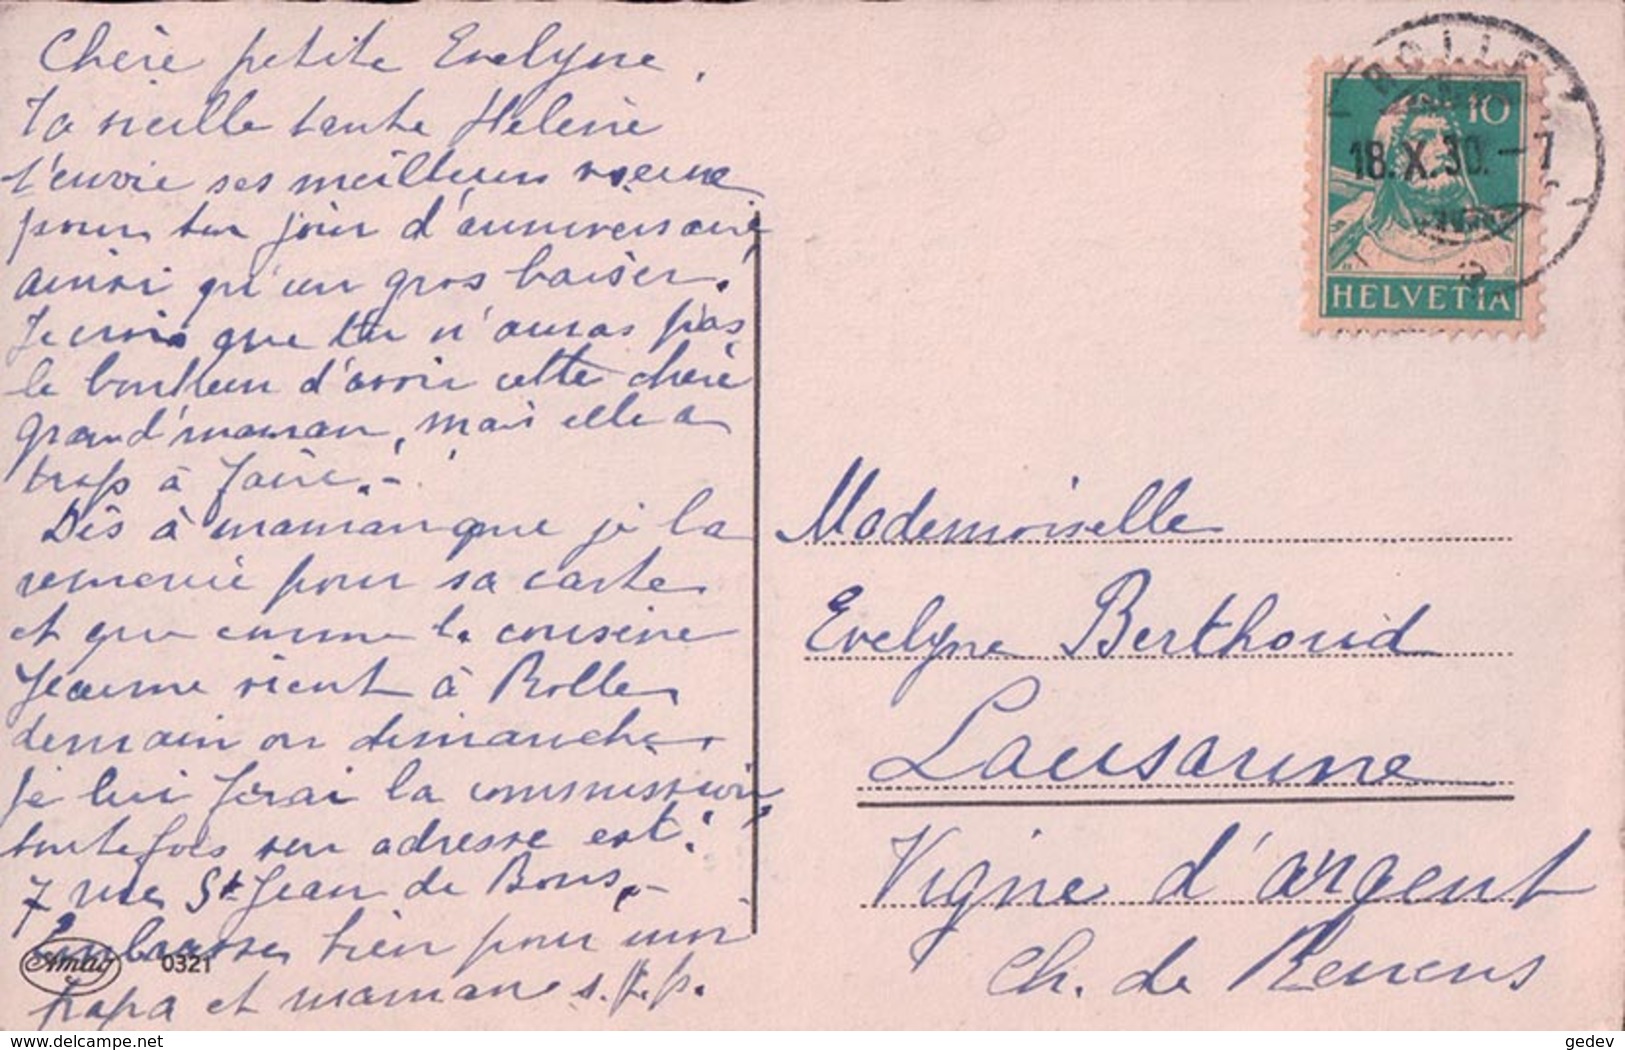 Chère petite Evelyne,
Ta vieille tante Hélène
t'envoie ses meilleurs voeux
pour ton jour d'anniversaire
ainsi qu'un gros baiser.
Je crois que tu n'auras pas
le bonheur d'avoir cette chère
grand'maman, mais elle a
trop à faire.-
Dis à maman que je la
remercie pour sa carte
et que comme la cousine
Jeanne vient à Rolle
demain ou dimanche
je lui ferai la commission,
toutefois son adresse est:
7 rue St Jean de Bons.-
Embrasse bien pour moi
papa et maman s.t.p.
Amag 0321
ROLLE
18.X.30.-7
10
HELVETIA
Mademoiselle
Evelyne Berthoud
Lausanne
Vigne d'argent
Ch. de Renens
www.delcampe.net
gedev